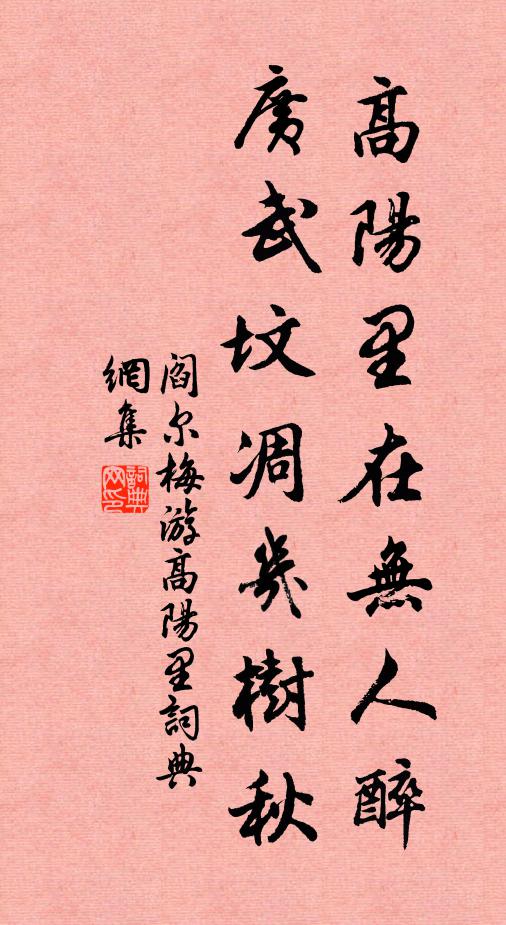 高陽里在無人醉
廣武坟凋幾樹秋
閻尔梅游高陽里詞典
網集
詞典
网印